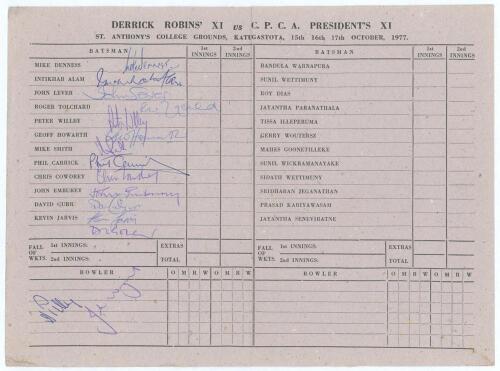 DERRICK ROBINS' XI vs C. P. C. A. PRESIDENT'S XI
ST. ANTHONY'S COLLEGE GROUNDS, KATUGASTOTA, 15th 16th 17th OCTOBER, 1977.
BATSMAN 1st INNINGS 2nd INNINGS BATSMAN 1st INNINGS 2nd INNINGS
MIKE DENNESS BANDULA WARNAPURA
INTIKHAB ALAM SUNIL WETTIMUNY
JOHN LEVER ROY DIAS
ROGER TOLCHARD JAYANTHA PARANATHALA
PETER WILLEY TISSA ILLEPERUMA
GEOFF HOWARTH GERRY WOUTERSZ
MIKE SMITH MAHES GOONETILLEKE
PHIL CARRICK SUNIL WICKRAMANAYAKE
CHRIS COWDREY SIDATH WETTIMENY
JOHN EMBUREY SRIDHARAN JEGANATHAN
DAVID GURR PRASAD KARIYAWASAM
KEVIN JARVIS JAYANTHA SENEVIRATNE
FALL OF WKTS. 1st INNINGS: EXTRAS FALL OF WKTS. 1st INNINGS: EXTRAS
2nd INNINGS: TOTAL 2nd INNINGS: TOTAL
BOWLER O M R W O M R W BOWLER O M R W O M R W